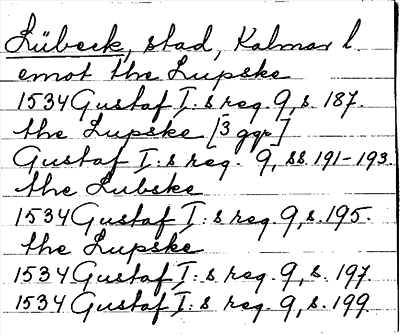 Lübeck, stad, Kalmar l.
emot the Lupske
1534 Gustaf I:s reg. 9, s. 187.
the Lupske [3 ggr]
Gustaf I:s reg. 9, ss. 191-193.
the Lubske
1534 Gustaf I:s reg. 9, s. 195.
the Lupske
1534 Gustaf I:s reg. 9, s. 197.
1534 Gustaf I:s reg. 9, s. 199